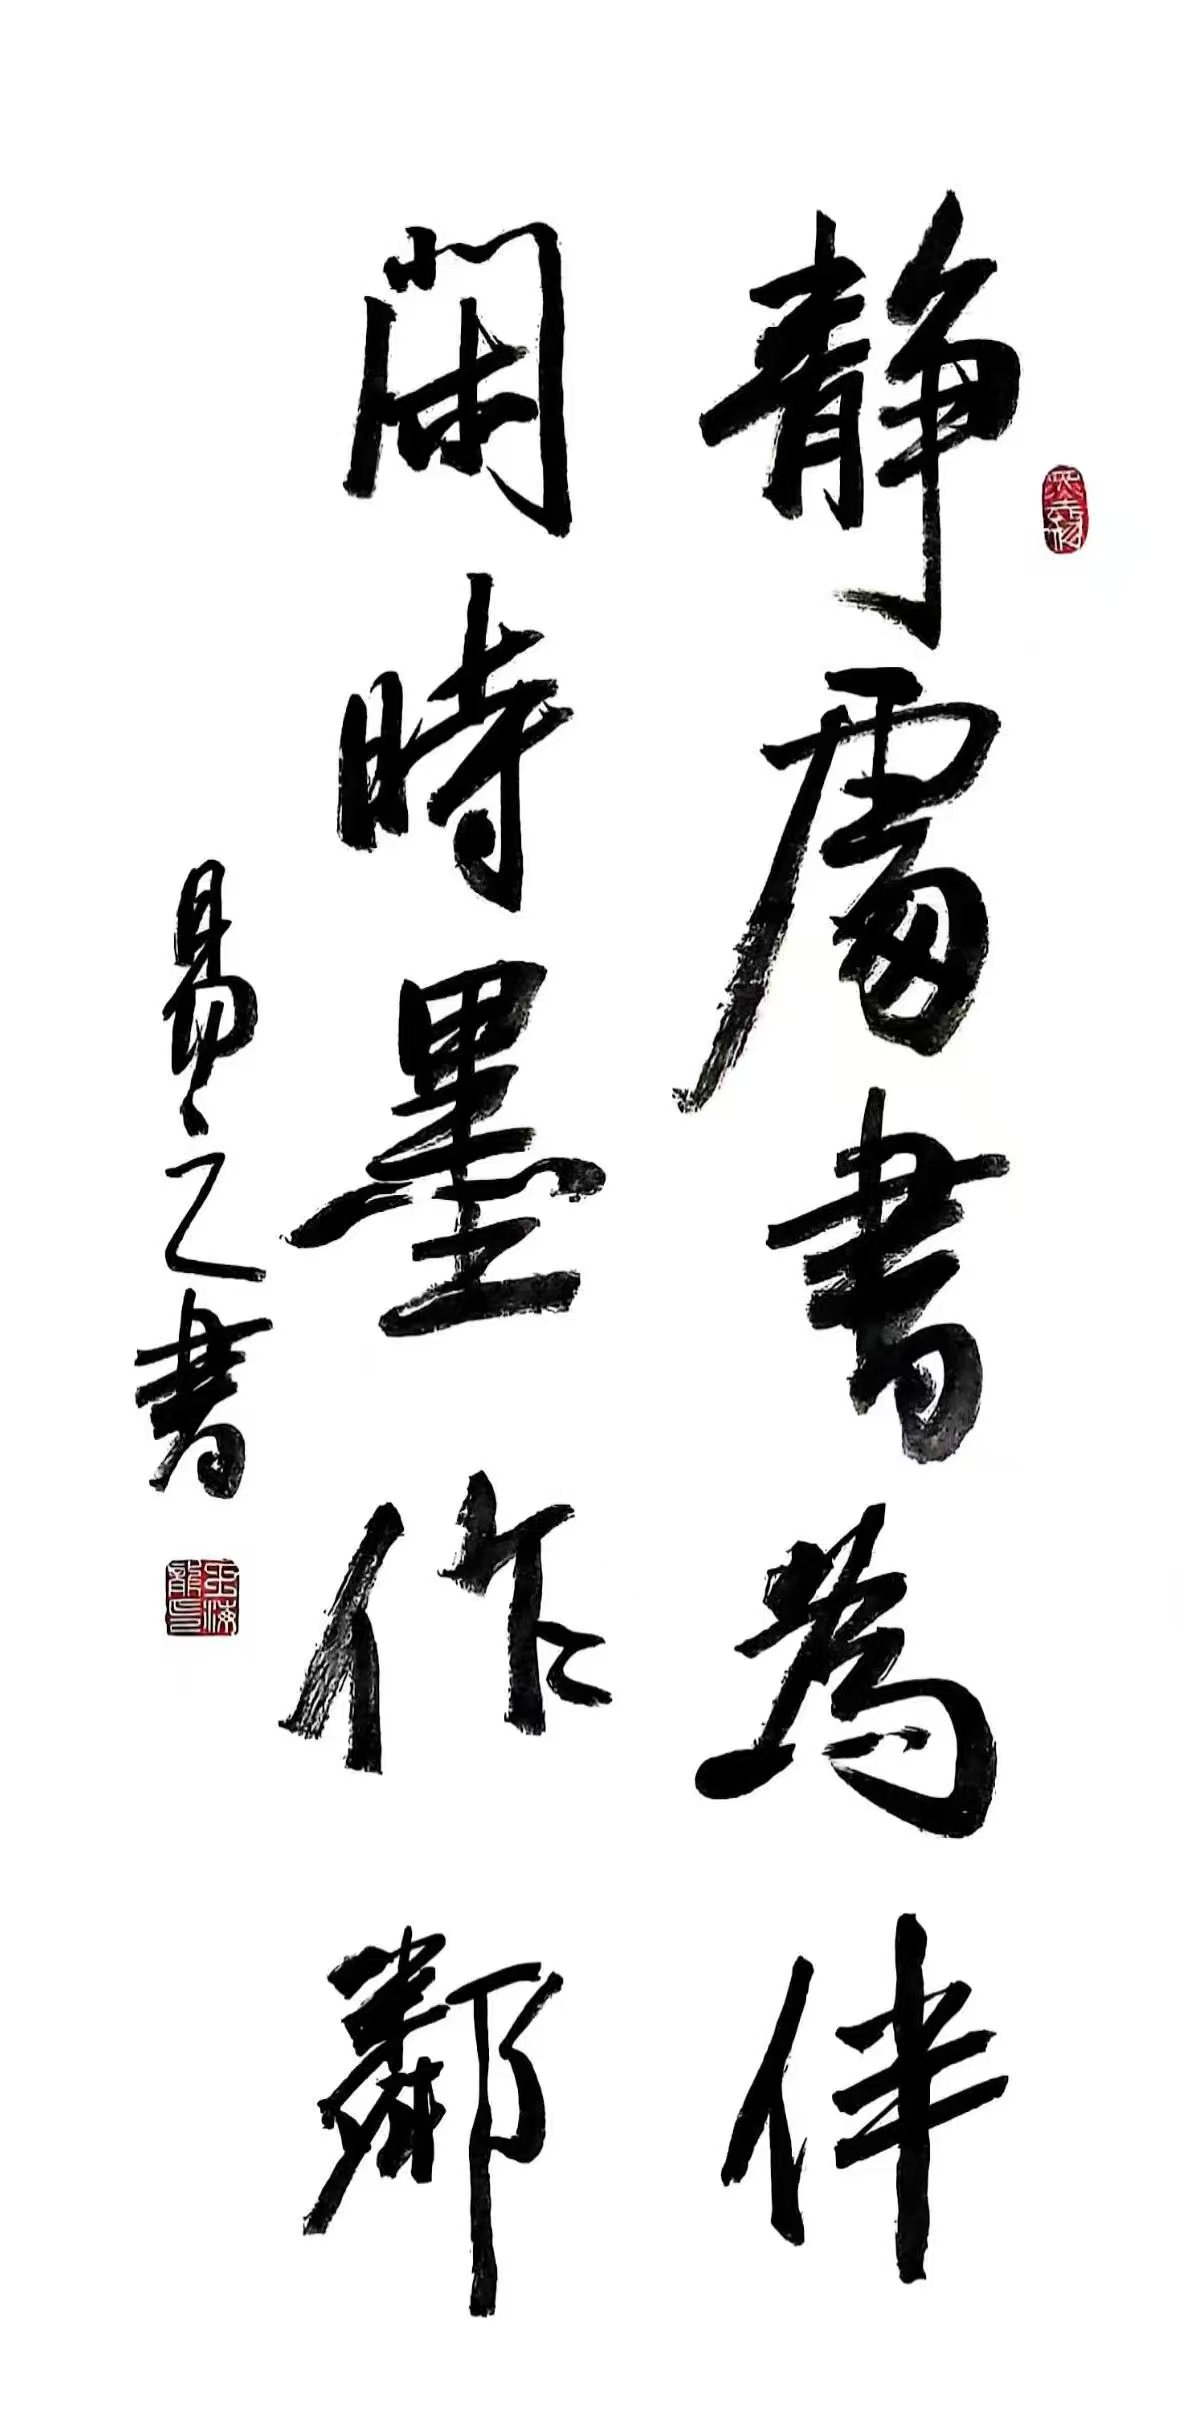 靜處書為伴
閑時墨作鄰
易之書